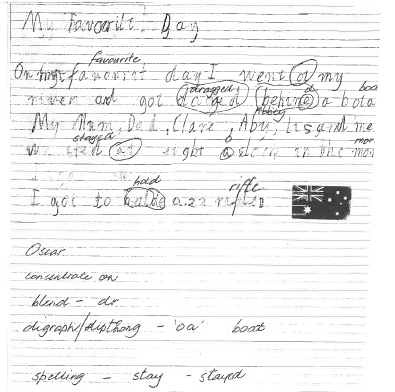 My Favourit Day
favourite
On my favourit day I went o my
dragged d boa
river and got darged behing a bota
Abbey
My Mum, Dad, Clare, Aby, Lis and me
stayed o mor
at night a sleep in the mor
hold rifle
I got to a 22
Oscar
concentrate on
blend - dr
digraph/dipthong - 'oa' boat
spelling - stay - stayed